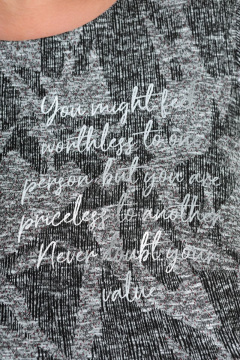 You might feel
worthless to one
person but you are
priceless to another
Never doubt your
value